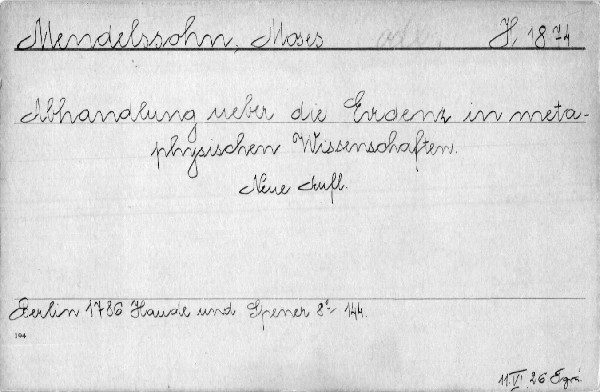 Mendelssohn, Moses H, 1874
Abhandlung ueber die Evidenz in meta-
physischen Wissenschaften.
Neue Aufl.
Berlin 1786 Haude und Spener 8° 144.
104
11.VI.26